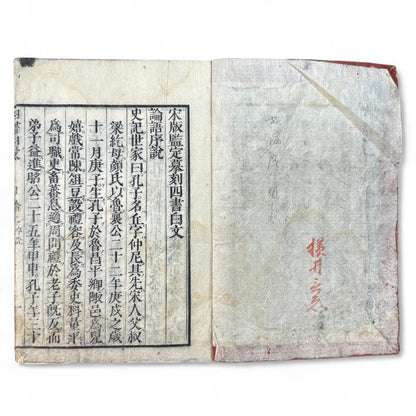 宋版監定摹刻四書白文
論語序説
史記世家曰孔子名丘字仲尼其先宋人父叔
梁紇母顔氏以魯襄公二十二年庚戌之歲
十一月庚子生孔子於魯昌平郷陬邑爲兒
嬉戲常陳俎豆設禮容及長爲委吏料量平
爲司職吏畜蕃息適周問禮於老子既反而
弟子益進昭公二十五年甲申孔子年三十
横井